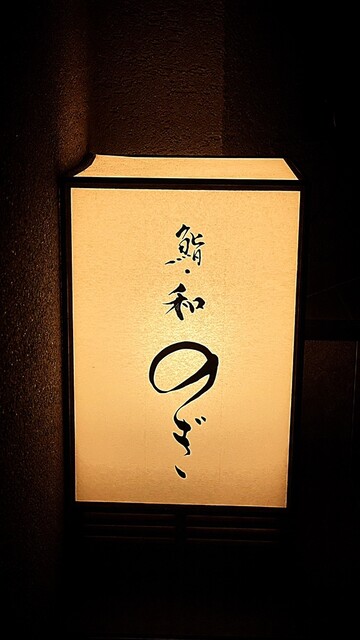 鮨・和
のぎ